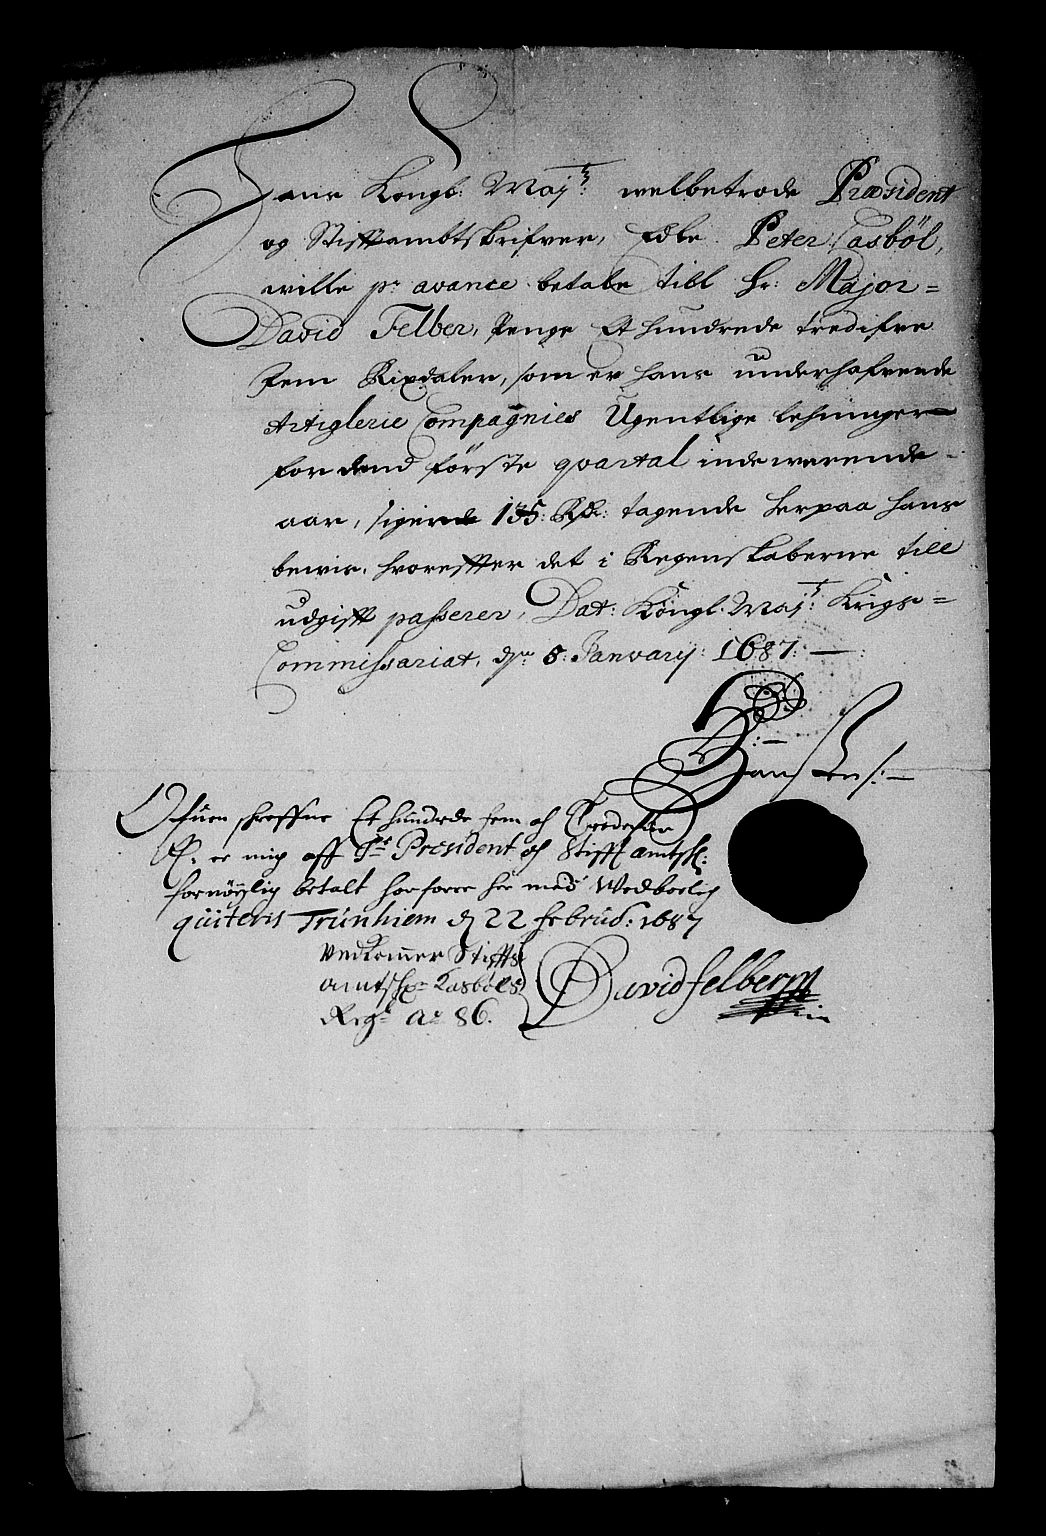 Hans Kongl: Maytz: welbetrode Præsident
og Stifftambtskrifver, Edle Peter Casböl,
wille pr avance betale till Hr: Major=
David Felber, Penge Et hundrede tredifve
fem Rixdaler, som er hans underhafvende
Artiglerie Compagnies Ugentlige lehninger
for dend förste qvartal indewerende
aar, sigende 135: Rdr: tagende herpaa hans
bewis, hvoreffter det i Regenskaberne till
udgifft passerer, Dat: Köngl. Mayts: Krigs=
Commissariat, dn 5: Januarij: 1687:
H:
Ofuen schreffne Et hundrede fem og Tredefue
Rd. er mig aff Hr President og Stifft amtsk:
fornöyelig betalt horforre her med Wedborlig
quiteris Trünhiem d 22 februd: 1687
Vedkommer Stiffts
amtschr Kasböls
Regn Ao 86.
David felber m